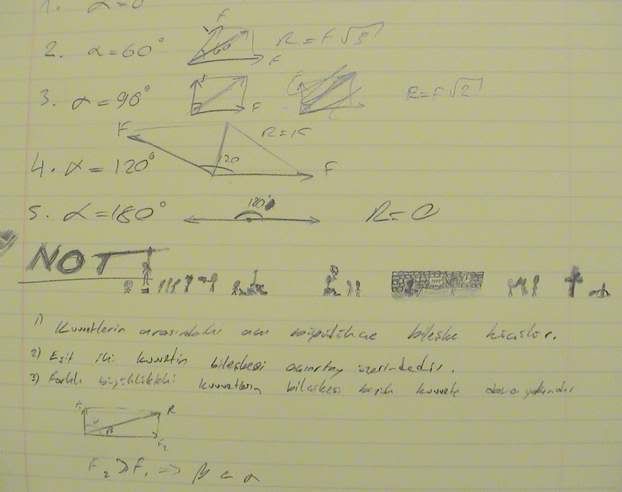 1. α=0
2. α=60° 60 F F R=F√3
3. α=90° F F R=F√2
4. α=120° F 120 F R=F
5. α=180° 180° R=0
NOT
1) Kuvvetlerin arasındaki açı büyüdükçe bileşke küçülür.
2) Eşit iki kuvvetin bileşkesi açıortay üzerindedir.
3) Farklı büyüklükteki kuvvetlerin bileşkesi büyük kuvvete daha yakındır
α β R F₂
F₂ > F₁ ⇒ β < α